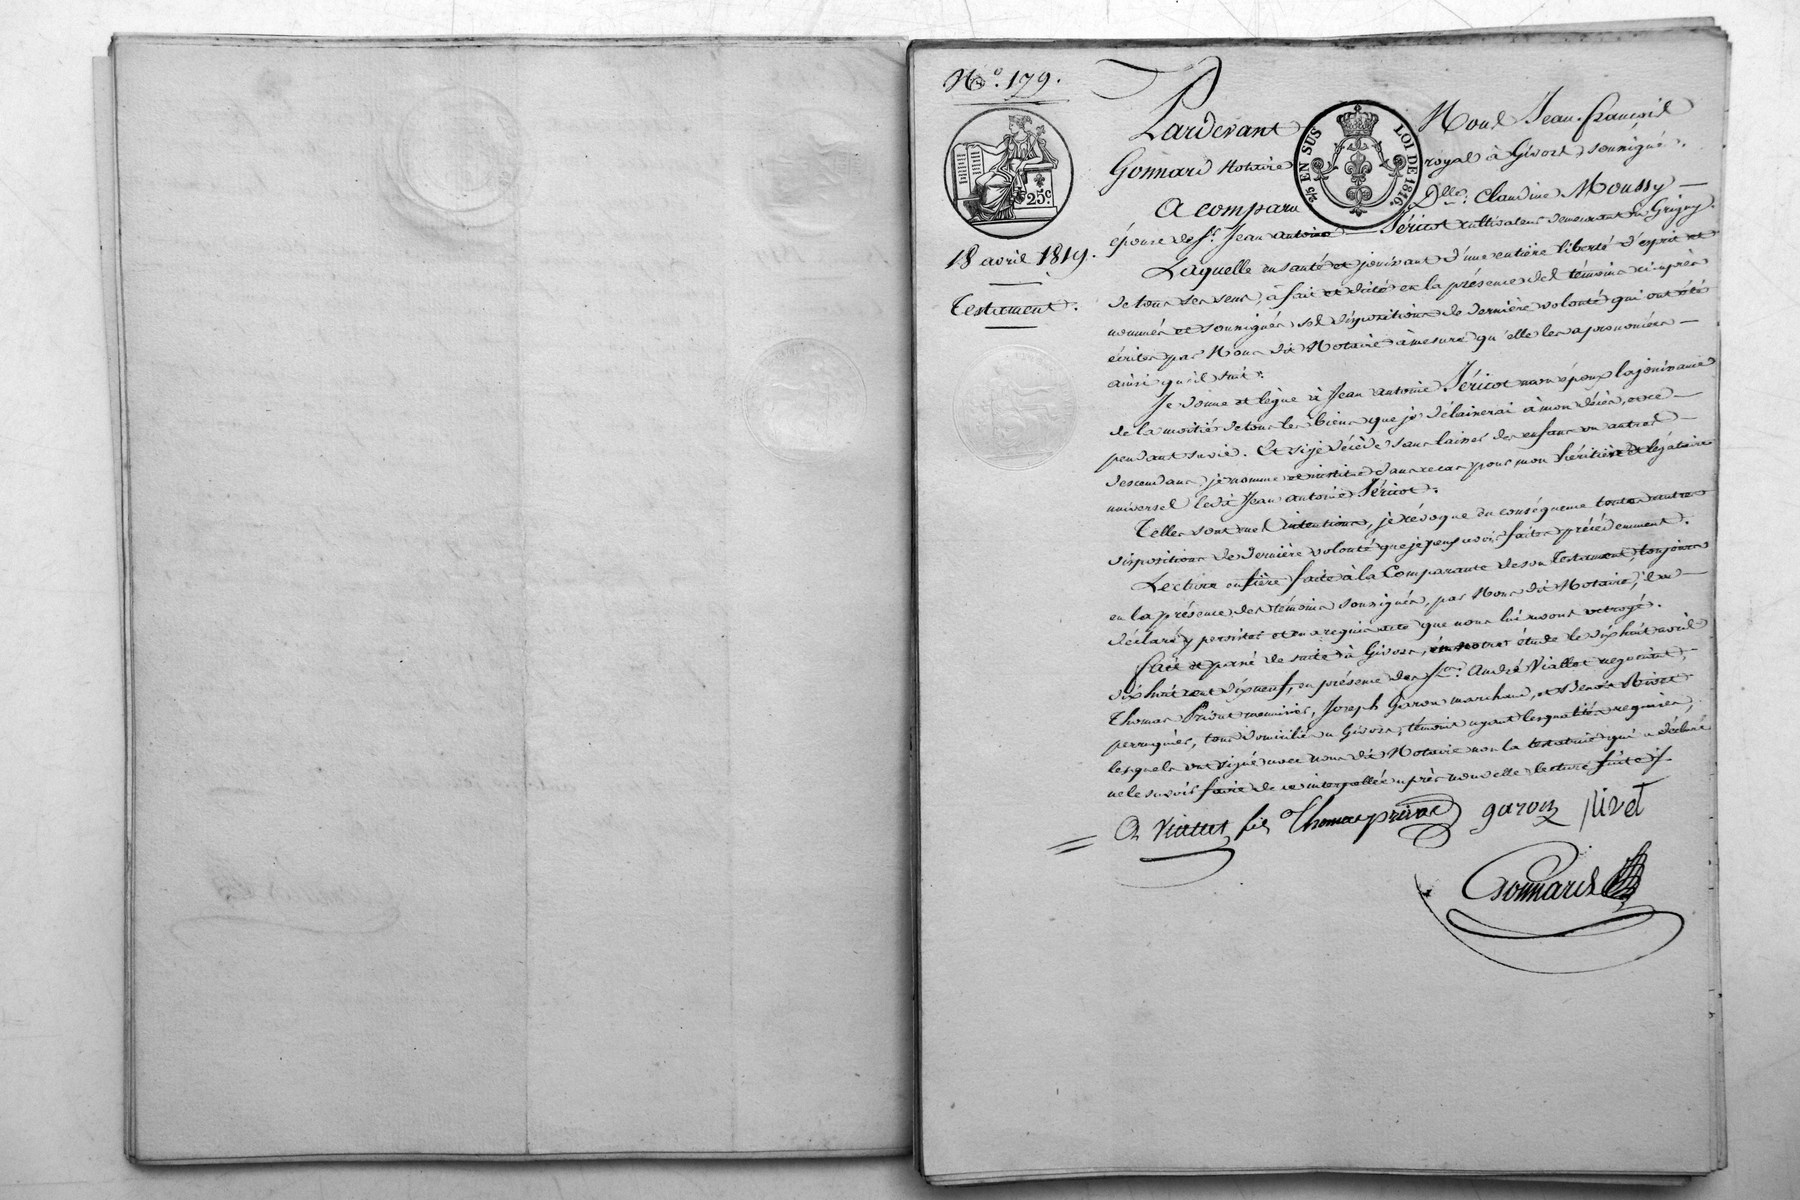 N.º 179.
Pardevant Nous Jean françois
Gonnard Notaire royal à Givors soussigné.
25.c
2/5 EN SUS
LOI DE 1816.
A comparu D.lle Claudine Moussy —
épouse de S.r Jean antoine — Féricot cultivateur demeurant à Grigny.
18 avril 1819.
Testament.
Laquelle en santé et jouissant d'une entière liberté d'esprit et
de tous ses sens, a fait et dicté en la présence des témoins ci-après
nommés et soussignés ses dispositions de dernière volonté qui ont été
écrites par Nous dit Notaire à mesure qu'elle les a prononcées —
ainsi qu'il suit :
Je donne et lègue à Jean antoine Féricot mon époux la jouissance
de la moitié de tous les biens que je délaisserai à mon décès, et ce —
pendant sa vie. Et si je décède sans laisser des enfans ou autres —
descendans, je nomme et institue dans ce cas pour mon héritier et légataire
universel ledit Jean antoine Féricot.
Telles sont mes intentions, je révoque en conséquence toutes autres
dispositions de dernière volonté que je peus avoir faites précédemment.
Lecture entière faite à la Comparante de son testament, toujours
en la présence des témoins soussignés, par Nous dit Notaire, elle a —
déclaré y persister et en a requis acte que nous lui avons octroyé.
fait et passé de suite à Givors, en notre étude le dix huit avril
dix huit cent dix neuf, en présence des S.rs André Viallet négociant,
Thomas Privat menuisier, Joseph Garon marchand, et Benoit Rivet
perruquier, tous domiciliés à Givors, témoins ayant les qualités requises,
lesquels ont signé avec nous dit Notaire non la testatrice qui a déclaré
ne le savoir faire de ce interpellée après nouvelle lecture faite
A Viallet fils Thomas privat garon Rivet
Gonnard